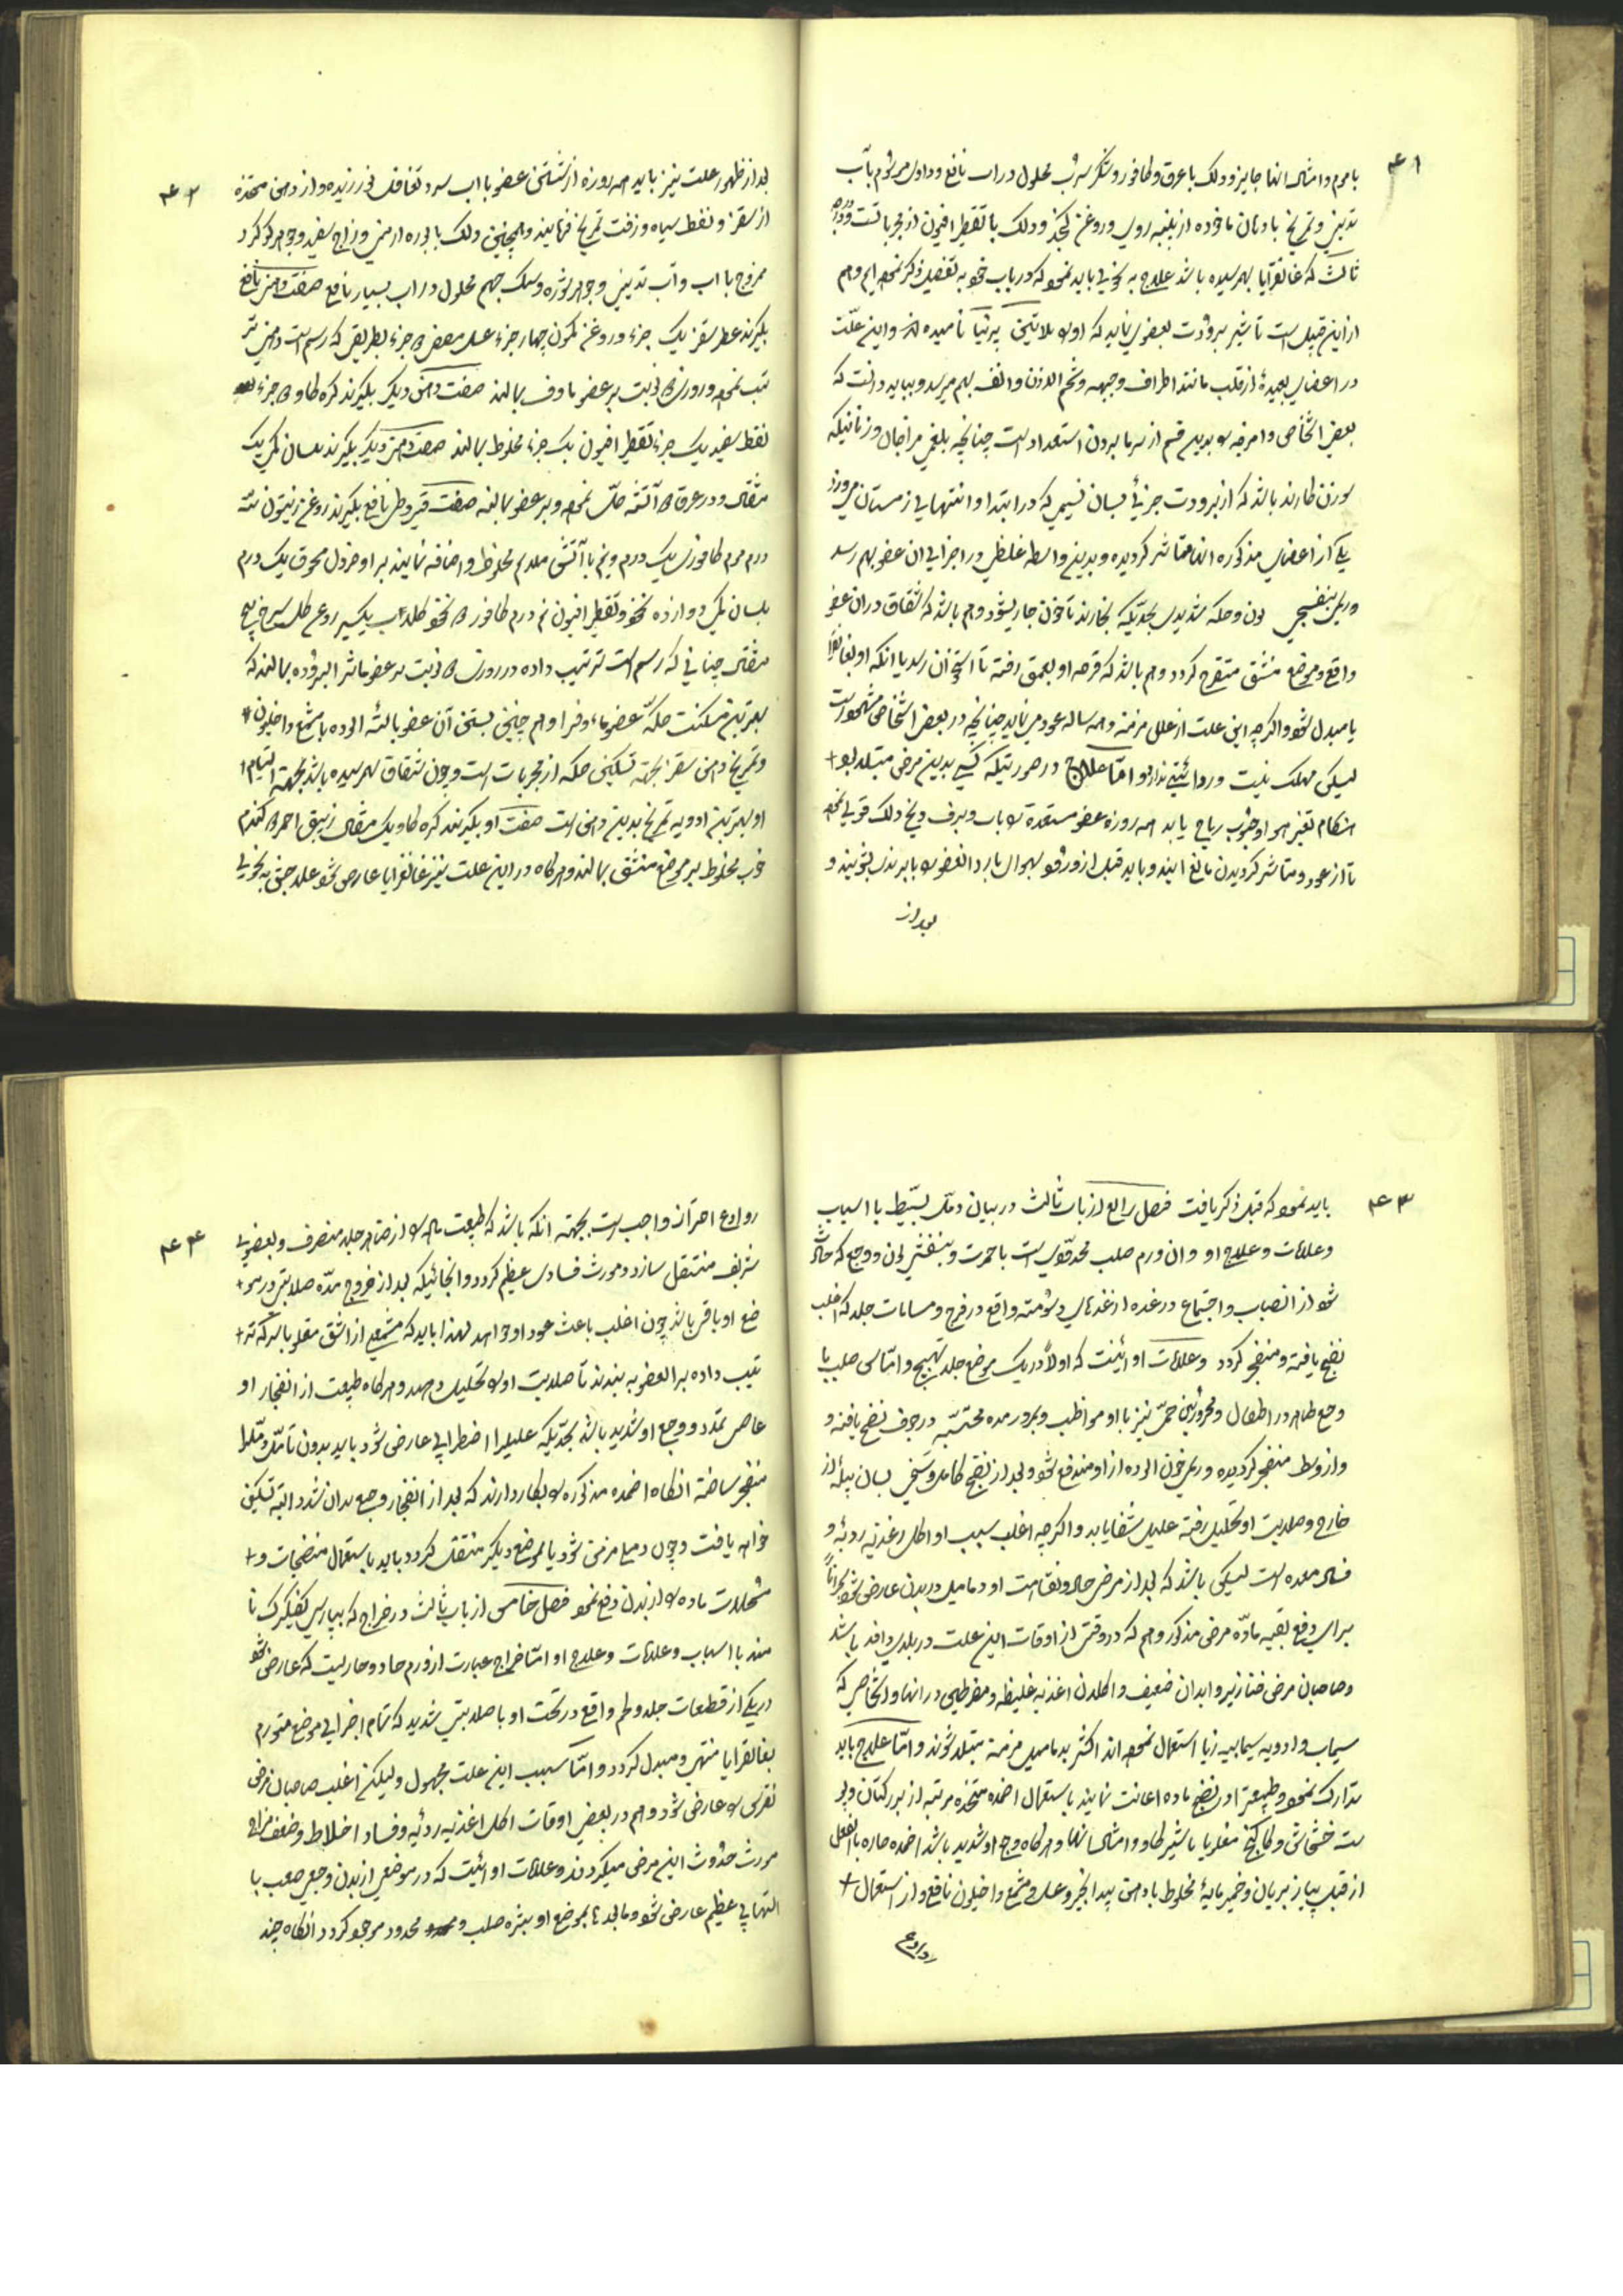 ۴۱
با مرهم و امثال انها جایز و دلک با عرق و کافور و شکر سرب محلول در اب نافع و داول مرسوم بآب
تدبیر و تمریخ با دهان ماخوده از بلنبه روس و روغن کنجد و دلک با تقطیر افیون از مجربا تست
ثالث که غانغرآیا بهمرسیده باشد علاج به نحوی باید نمود که در باب خود به تفصیل ذکر نموده ایم و هم
از این قبیل است تأثیر برودت بعضی نماید که او را بلاتینی پرنیا نامیده اند و این علّت
در اعضای بعیدهٔ از قلب مانند اطراف وجهه و شحم الاذن و انف بهم میرسد و بباید دانست که
بعضی اشخاص و امزجه را بدین قسم از سرما بردن استعداد است چنانچه بلغمی مزاجان و زنانیکه
سوزن کارند باشد که از برودت جزئی بسان نسیمی که در ابتدا و انتهای زمستان میوزد
یکی از اعضای مذکوره انها متاثر گردیده و بدین واسطه غلظی در اجزای ان عضو بهم رسد
و رنگ بنفسجی لون و حکه شدیدی بحدّیکه بخارند تا خون جاری شود و هم باشد که انشقاق در ان عضو
واقع و موضع منشق متقرح کردد و هم باشد که قرحه او بعمق رفته تا استخوان رسد یا انکه او بغانغرآ
یا مبدل شود و اگرچه این علت از علل مزمنه و همه ساله عود می نماید چنانچه در بعضی اشخاص مشهور است
لیکن مهلک نیست و ردائتی ندارد و امّا علاج در صورتیکه کسی بدین مرض مبتلا بود
هنگام تغیر هوا و هبوب ریاح باید همه روزه عضو مستعده را باب و برف و یخ دلک قوی نمود
تا از عود و متاثر کردیدن مانع ایند و باید قبل از ورود بهوای بارد العضو را با بر بندی بپوشند و
بعد از
۴۲
بعد از ظهور علت نیز باید همه روزه از شستن عضو با اب سرد تغافل نورزیده و از دهن متخذه
از سقز و نفط سیاه و زفت تمریخ فرمایند و همچنین دلک با بوره ارمنی و زاج سفید و جوهر کوکرد
ممزوج با اب و آب تدبیر و جوهر شوره و سنک جهنم محلول در اب بسیار نافع صفت دهن نافع
بکیرند عطر سقز یک جزء و روغن کمون چهار جزء عسل مصفی ۵ جزء بطریقی که رسم است دهنی تر
تیب نموده و روزی ۵ نوبت بر عضو ماوف بمالند صفت دهن دیکر بکیرند کره کاو ۵ جزء
نفط سفید یک جزء تقطیر افیون یک جزء مخلوط بمالند صفت دهن دیکر بکیرند بلسان مکی یک
مثقال و در عرق ۵ آتشه حلّ نموده و بر عضو بمالند صفت قیروطی نافع بکیرند روغن زیتون سه
درم موم کافوری یک درم و نیم با آتش ملایم مخلوط و اضافه نمایند بر او خردل محرق یک درم
بلسان مکی دوازده نخود تقطیر افیون نیم درم کافور ۵ نخود
مثقال چنانی که رسم است ترتیب داده در روزی ۵ نوبت بر عضو متاثر البروده بمالند که
بهترین مسکنت حکّه عضو ماءوفرا و هم چنین بستن آن عضو بالتّه الوده با مشمع داخلیون
و تمریخ دهن سقز بجهته تسکین حکه از مجربات است و چون شقاق بهمرسیده باشد بجهته التیام
او بهترین ادویه تمریخ بدین دهن است صفت او بکیرند کره کاو یک مثقال زیبق احمر ۵ کندم
خوب مخلوط بر موضع منشق بمالند و هرکاه در این علت نیز غانغرایا عارض شود علاجش به نحوی
۴۳
باید نمود که قبل ذکر یافت فصل رابع از باب ثالث در بیان دمّل بسیّط با اسباب
و علامات و علاج او و ان ورم صلب محدّدی است با حمرت و بنفش لون و وجع که حادث
شود از انصباب و اجتماع در غده از غدهای دسُومته واقع در فرج و مسامات جلد که اغلب
نضج یافته و منفجر کردد و علامات او اینست که اولاً در یک موضع جلد تهیج و امّاسی صلب با
وجع ظاهر در اطفال و محرورین حمّی نیز با او مواظب و بمرور مده محتسبه در جوف نضج یافته و
و از وسط منفجر کردیده و ریم خون الوده از او مندفع شود و بعد از نضج کامل و سخی بسان پیله از
خارج و صلابت او تحلیل رفته علیل شفا یابد و اکرچه اغلب سبب او اکل اغذیه ردیّه و
فساد معده است لیکن باشد که بعد از مرض حاد و نقاهت او دمامیل در بدن عارض شود بحراناً
برای دفع بقیه مادّه مرض مذکور و هم که در وقتی از اوقات این علت در بلدی وافد باشد
و صاحبان مرض خنازیر و ابدان ضعیف و اکلان اغذیه غلیظه و مفرطین در انها و اشخاصی که
سیماب و ادویه سیمابیه زیاد استعمال نموده اند اکثر بدمامیل مزمنه مبتلا شوند و امّا علاج باید
تدارک نمود و طبیعترا در نضج ماده اعانت نمایند باستعمال اضمده متخذه مرتبه از بزر کتان و پو
ست خشخاش و کاکنج مغلوبا با شیر کاو و امثال انها و هرکاه وجع او شدید باشد اضمده حاره بالفعل
از قبیل پیاز بریان و خمیر مایهٔ مخلوط با دهن بید انجیر و عسل و مشمع داخلیون نافع و از استعمال
روادع
۴۴
روادع احتراز واجب است بجهته انکه باشد که طبیعت ماده را از ظاهر جلد منصرف و بعضوی
شریف منتقل سازد و مورث فسادی عظیم کردد و انجائیکه بعد از خروج مدّه صلابتی در مو
ضع او باقی باشد چون اغلب باعث عود او خواهد بود لهذا باید که مشمعی از اشق مقلو با سرکه تر
تیب داده بر العضو به بندند تا صلابت او را تحلیل دهد و هرکاه طبیعت از انفجار او
عاصی تمدد و وجع او شدید باشد بحدّیکه علیلرا اضطرابی عارض شود باید بدون تأمّل دمّلرا
منفجر ساخته انکاه اضمده مذکوره را بکار دارند که بعد از انفجار وجع بدان شدد البتّه تسکین
خواهد یافت و چون دمامیل مزمن شود یا بموضع دیکر منتقل کردد باید باستعمال منضجات و
محللات ماده را از بدن دفع نمود فصل خامس از باب ثالث در خراج که بپارسی کفکیرک نا
مند با اسباب و علامات و علاج او امّا خراج عبارت از ورم حاد و حاریست که عارض شود
در یکی از قطعات جلد و لحم واقع در تحت او با صلابتی شدید که تمام اجزای موضع متورم
بغانقرایا منتهی و مبدل کردد و امّا سبب این علت مجهول و لیکن اغلب صاحبان مرض
نقرس را عارض شود و هم در بعضی اوقات اکل اغذیه ردیّه و فساد اخلاط و ضعف مزاج
مورث حدوث این مرض میکردند و علامات او اینست که در موضعی از بدن وجعی صعب با
التهابی عظیم عارض شود و ما بعد ها بموضع او بثره صلب و محدود موجود کردد انکاه چند